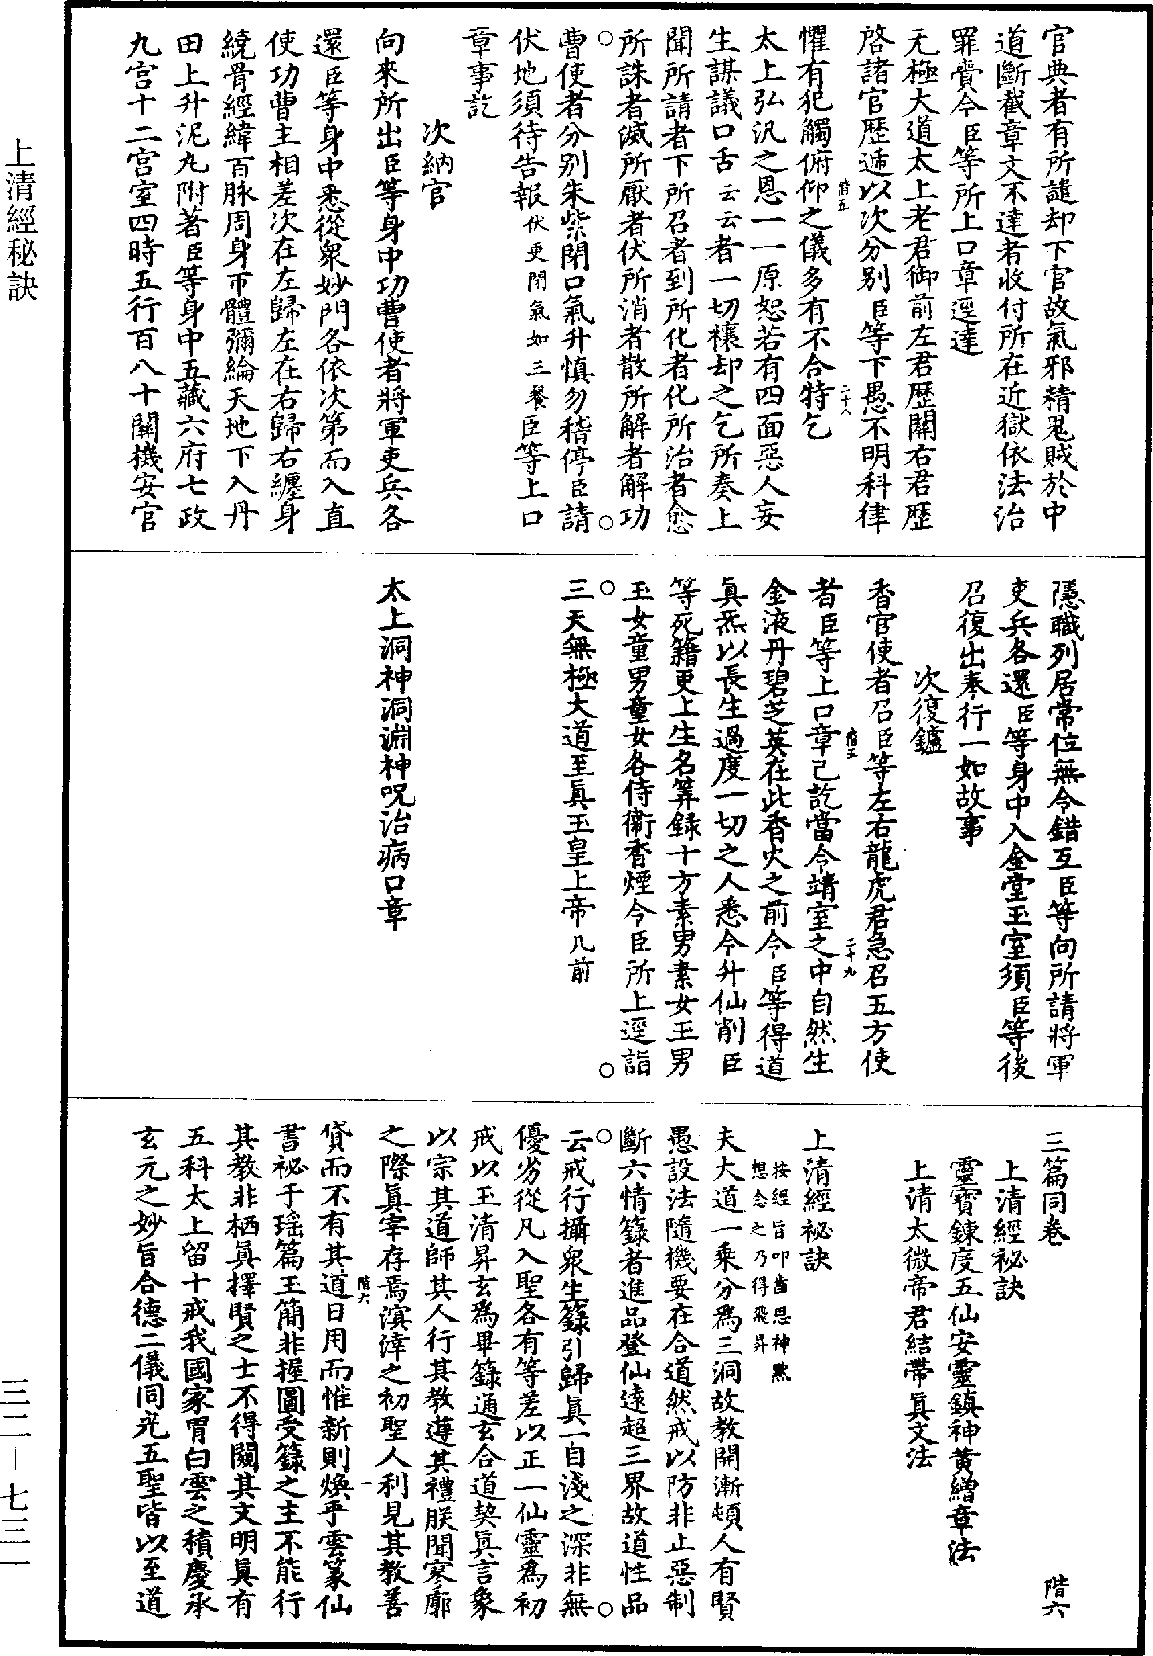 官典者有所譴却下官故氣邪精鬼賊於中
道斷截章文不達者收付所在近獄依法治
罪賫今臣等所上口章逕達
无極大道太上老君御前左君歷關右君歷
啓諸官歷遞以次分別臣等下愚不明科律
階五
二十八
懼有犯觸俯仰之儀多有不合特乞
太上弘汎之恩一一原恕若有四面惡人妄
生謀議口舌云云者一切禳却之乞所奏上
聞所請者下所召者到所化者化所治者愈
所誅者滅所厭者伏所消者散所解者解功
曹使者分別朱紫閉口氣升慎勿稽停臣請
伏地須待告報伏更閉氣如三餐臣等上口
章事訖
次納官
向來所出臣等身中功曹使者將軍吏兵各
還臣等身中悉從衆妙門各依次第而入直
使功曹主相差次在左歸左在右歸右纏身
繞骨經緯百脉周身帀體彌綸天地下入丹
田上升泥丸附著臣等身中五藏六府七政
九宮十二宮室四時五行百八十關機安官
隱職列居常位無令錯互臣等向所請將軍
吏兵各還臣等身中入金堂玉室須臣等後
召復出奉行一如故事
次復鑪
香官使者召臣等左右龍虎君急召五方使
階五
二十九
者臣等上口章已訖當令靖室之中自然生
金液丹碧芝英在此香火之前令臣等得道
眞炁以長生過度一切之人悉令升仙削臣
等死籍更上生名筭録十方素男素女玉男
玉女童男童女各侍衞香煙令臣所上逕詣
三天無極大道至眞玉皇上帝几前
太上洞神洞淵神呪治病口章
三篇同卷
階六
上清經祕訣
靈寶鍊度五仙安靈鎮神黄繒章法
上清太微帝君結帶眞文法
上清經祕訣
按經旨叩齒思神黙
想念之乃得飛昇
夫大道一乘分爲三洞故教開漸頓人有賢
愚設法隨機要在合道然戒以防非止惡制
斷六情籙者進品登仙遠超三界故道性品
云戒行攝衆生籙引歸眞一自淺之深非無
優劣從凡入聖各有等差以正一仙靈爲初
戒以玉清昇玄爲畢籙通玄合道契眞言象
以宗其道師其人行其教遵其禮朕聞寥廓
之際眞宰存焉溟涬之初聖人利見其教善
階六
一
貸而不有其道日用而惟新則煥乎雲篆仙
書祕于瑶篇玉簡非握圖受籙之主不能行
其教非栖眞擇賢之士不得闚其文明眞有
五科太上留十戒我國家胄白雲之積慶承
玄元之妙旨合德二儀同光五聖皆以至道
上清經秘訣
三二—七三一